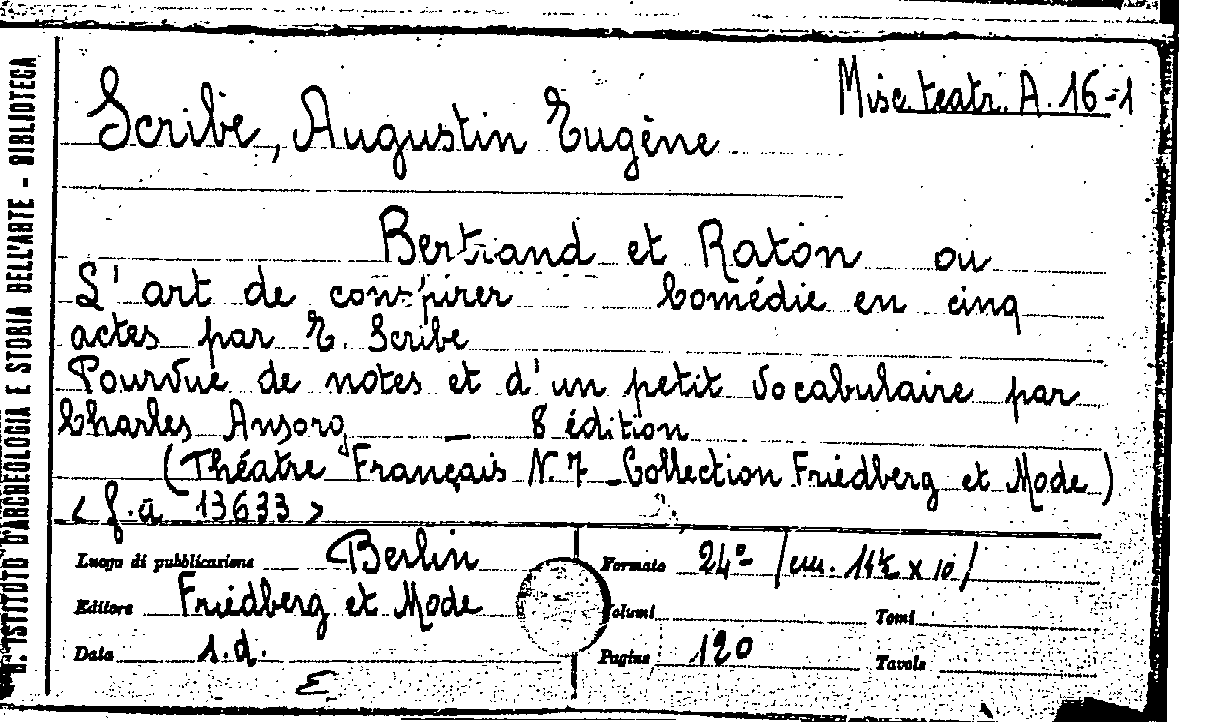 R. ISTITUTO D'ARCHEOLOGIA E STORIA DELL'ARTE - BIBLIOTECA
Misc. teatr. A. 16-1
Scribe, Augustin Eugène
Bertrand et Raton ou
L'art de conspirer Comédie en cinq
actes par E. Scribe
Pourvue de notes et d'un petit vocabulaire par
Charles Ansorg — 8 édition
(Théatre Français N. 7 - Collection Friedberg et Mode)
< f. a 13633 >
Luogo di pubblicazione Berlin
Formato 24° / cm. 14½ x 10 /
Editore Friedberg et Mode
Volumi
Tomi
Data s.d.
Pagine 120
Tavole
E